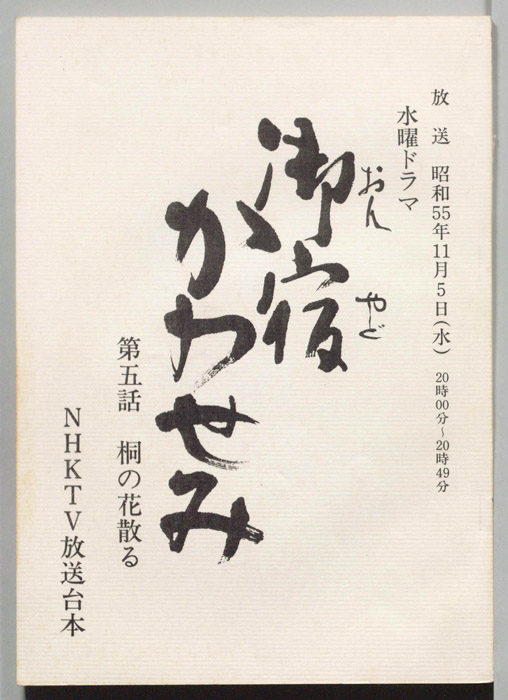 放送 昭和55年11月5日(水) 20時00分～20時49分
水曜ドラマ
おんやど
御宿
かわせみ
第五話 桐の花散る
NHKTV放送台本